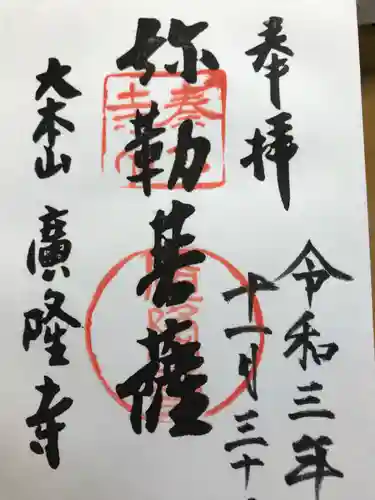 奉拝
令和三年
十一月三十
弥勒菩薩
大本山
廣隆寺